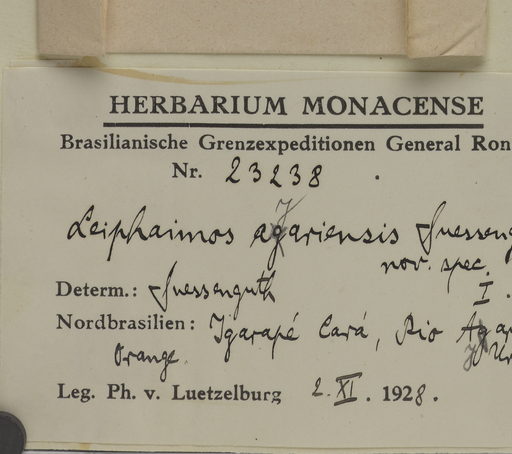 HERBARIUM MONACENSE
Brasilianische Grenzexpeditionen General Ron
Nr. 23238
Leiphaimos ajariensis Suesseng
nov. spec.
Determ.: Suessenguth I.
Nordbrasilien: Igarapé Cará, Rio
Orange.
Leg. Ph. v. Luetzelburg 2. XI. 1928.